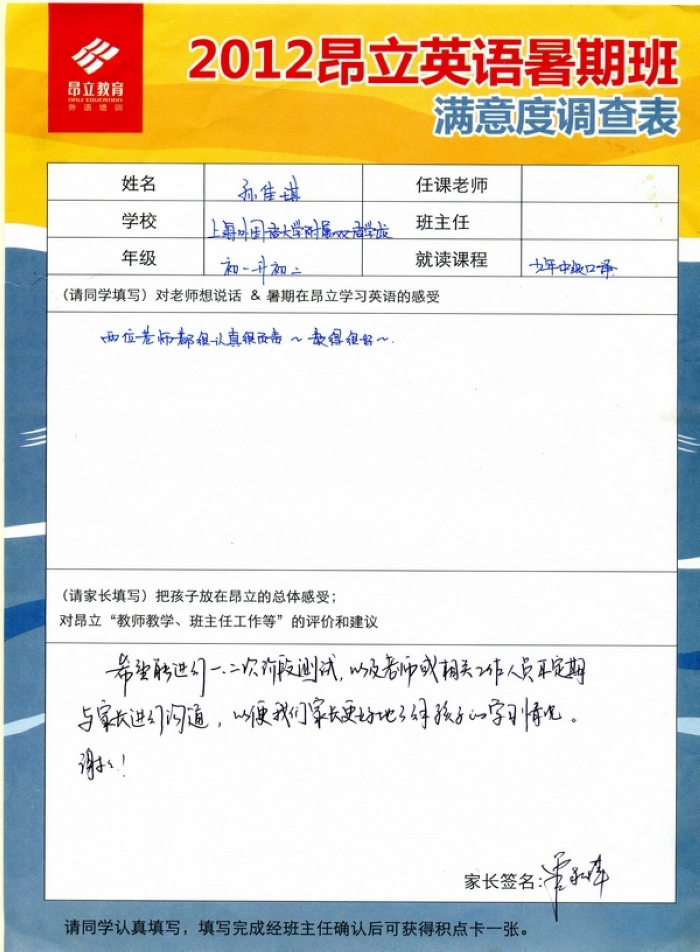 昂立教育
ONLY EDUCATION
外语培训
2012昂立英语暑期班
满意度调查表
姓名 孙佳琪 任课老师
学校 上海外国语大学附属双语学校 班主任
年级 初一升初二 就读课程 少年中级口译
(请同学填写)对老师想说话 & 暑期在昂立学习英语的感受
两位老师都很认真很负责~教得很好~.
(请家长填写)把孩子放在昂立的总体感受;
对昂立“教师教学、班主任工作等”的评价和建议
希望能进行一、二次阶段测试,以及老师或相关工作人员不定期
与家长进行沟通,以便我们家长更好地了解孩子的学习情况。
谢谢!
家长签名:
请同学认真填写,填写完成经班主任确认后可获得积点卡一张。